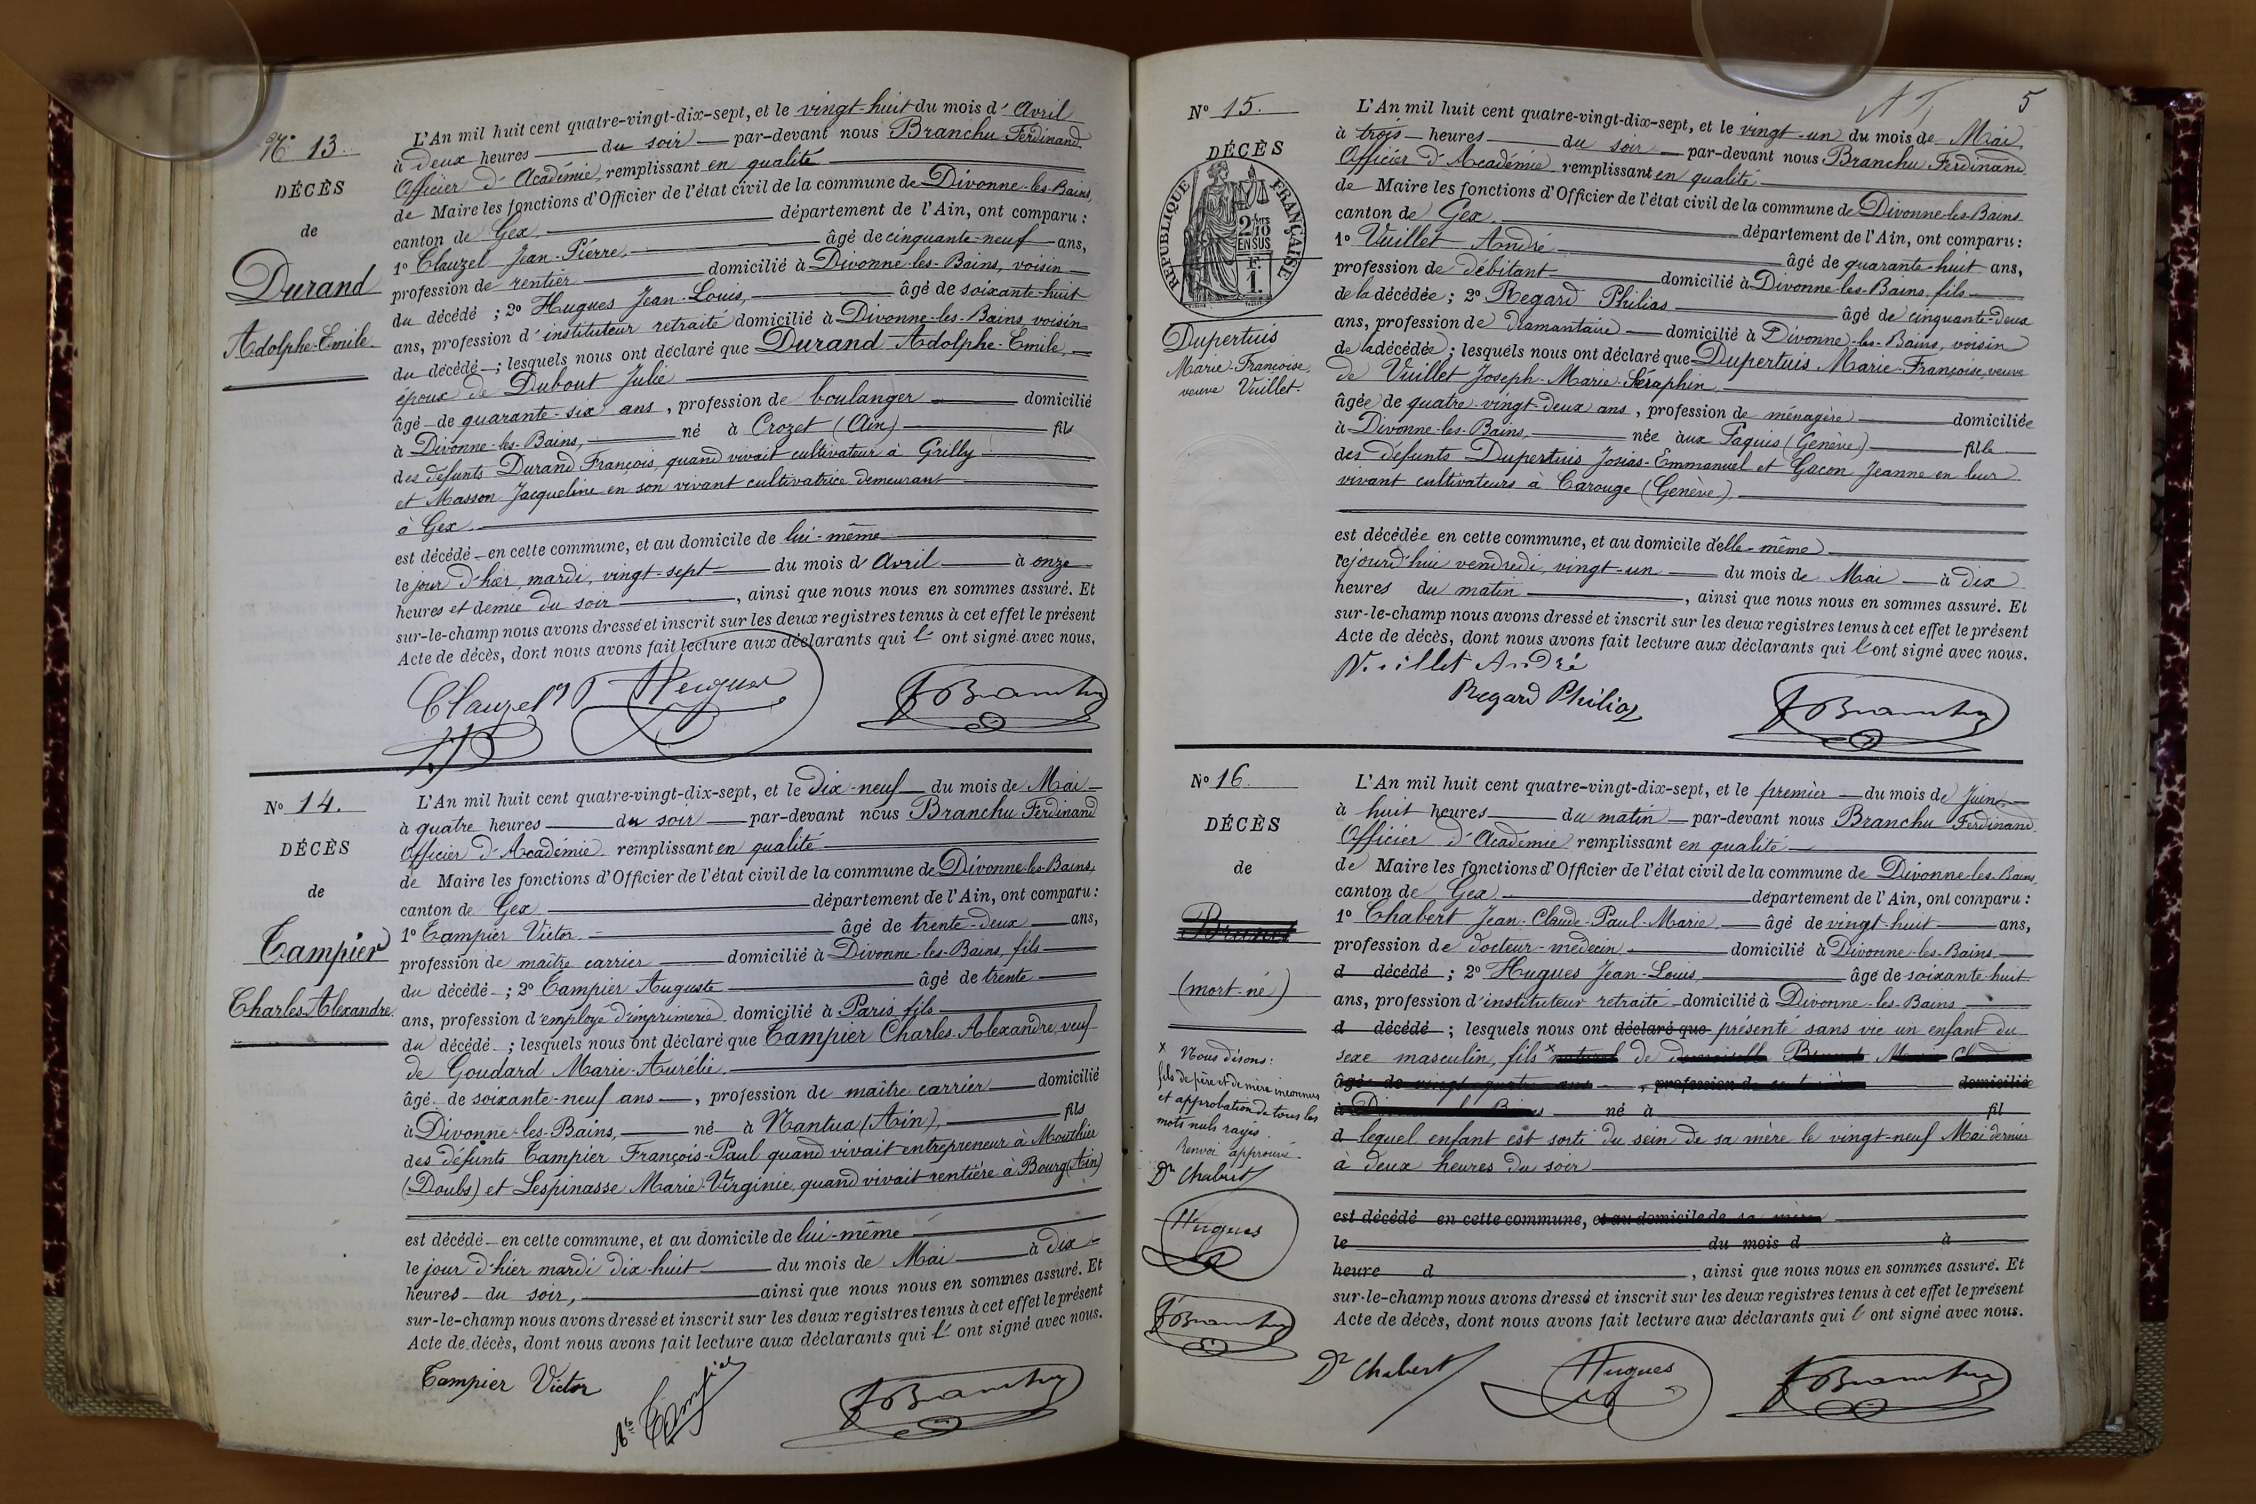 N° 13.
DÉCÈS
de
Durand
Adolphe-Emile
L'An mil huit cent quatre-vingt-dix-sept, et le vingt-huit du mois d'Avril
à deux heures du soir par-devant nous Branchu Ferdinand
Officier d'Académie, remplissant en qualité
de Maire les fonctions d'Officier de l'état civil de la commune de Divonne-les-Bains,
canton de Gex département de l'Ain, ont comparu :
1° Clauzel Jean-Pierre âgé de cinquante-neuf ans,
profession de rentier domicilié à Divonne-les-Bains, voisin
du décédé ; 2° Hugues Jean-Louis, âgé de soixante-huit
ans, profession d'instituteur retraité domicilié à Divonne-les-Bains voisin
du décédé ; lesquels nous ont déclaré que Durand Adolphe-Emile
époux de Dubout Julie
âgé de quarante-six ans, profession de boulanger domicilié
à Divonne-les-Bains, né à Crozet (Ain) fils
des défunts Durand François, quand vivait cultivateur à Grilly
et Masson Jacqueline en son vivant cultivatrice demeurant
à Gex
est décédé en cette commune, et au domicile de lui-même
le jour d'hier, mardi, vingt-sept du mois d'Avril à onze
heures et demie du soir, ainsi que nous nous en sommes assuré. Et
sur-le-champ nous avons dressé et inscrit sur les deux registres tenus à cet effet le présent
Acte de décès, dont nous avons fait lecture aux déclarants qui l'ont signé avec nous.
Clauzel Hugues FBranchu
N° 14.
DÉCÈS
de
Tampier
Charles-Alexandre
L'An mil huit cent quatre-vingt-dix-sept, et le dix-neuf du mois de Mai
à quatre heures du soir par-devant nous Branchu Ferdinand
Officier d'Académie remplissant en qualité
de Maire les fonctions d'Officier de l'état civil de la commune de Divonne-les-Bains,
canton de Gex département de l'Ain, ont comparu :
1° Tampier Victor âgé de trente-deux ans,
profession de maître carrier domicilié à Divonne-les-Bains, fils
du décédé ; 2° Tampier Auguste âgé de trente
ans, profession d'employé d'imprimerie domicilié à Paris fils
du décédé ; lesquels nous ont déclaré que Tampier Charles-Alexandre, veuf
de Goudard Marie-Aurélie
âgé de soixante-neuf ans, profession de maître carrier domicilié
à Divonne-les-Bains, né à Nantua (Ain), fils
des défunts Tampier François-Paul quand vivait entrepreneur à Mouthier
(Doubs) et Lespinasse Marie-Virginie, quand vivait rentière à Bourg (Ain)
est décédé en cette commune, et au domicile de lui-même
le jour d'hier mardi dix-huit du mois de Mai à dix
heures du soir, ainsi que nous nous en sommes assuré. Et
sur-le-champ nous avons dressé et inscrit sur les deux registres tenus à cet effet le présent
Acte de décès, dont nous avons fait lecture aux déclarants qui l'ont signé avec nous.
Tampier Victor Tampier FBranchu
5
N° 15.
DÉCÈS
RÉPUBLIQUE FRANÇAISE
2/10
EN SUS
F.
1.
Dupertuis
Marie-Françoise,
veuve Vuillet
L'An mil huit cent quatre-vingt-dix-sept, et le vingt-un du mois de Mai,
à trois heures du soir par-devant nous Branchu Ferdinand
Officier d'Académie remplissant en qualité
de Maire les fonctions d'Officier de l'état civil de la commune de Divonne-les-Bains
canton de Gex département de l'Ain, ont comparu :
1° Vuillet André âgé de quarante-huit ans,
profession de débitant domicilié à Divonne-les-Bains, fils
de la décédée ; 2° Regard Philias âgé de cinquante-deux
ans, profession de diamantaire domicilié à Divonne-les-Bains, voisin
de la décédée ; lesquels nous ont déclaré que Dupertuis Marie-Françoise, veuve
de Vuillet Joseph-Marie-Séraphin,
âgée de quatre-vingt-deux ans, profession de ménagère domiciliée
à Divonne-les-Bains, née aux Paquis (Genève) fille
des défunts Dupertuis Josias-Emmanuel et Gacon Jeanne en leur
vivant cultivateurs à Carouge (Genève)
est décédée en cette commune, et au domicile d'elle-même
cejourd'hui vendredi, vingt-un du mois de Mai à dix
heures du matin, ainsi que nous nous en sommes assuré. Et
sur-le-champ nous avons dressé et inscrit sur les deux registres tenus à cet effet le présent
Acte de décès, dont nous avons fait lecture aux déclarants qui l'ont signé avec nous.
Vuillet André
Regard Philias FBranchu
N° 16.
DÉCÈS
de
(mort-né)
x Nous disons :
fils de père et de mère inconnus
et approbation de tous les
mots nuls rayés
Renvoi approuvé
Dr Chabert
Hugues
FBranchu
L'An mil huit cent quatre-vingt-dix-sept, et le premier du mois de Juin
à huit heures du matin par-devant nous Branchu Ferdinand
Officier d'Académie remplissant en qualité
de Maire les fonctions d'Officier de l'état civil de la commune de Divonne-les-Bains,
canton de Gex département de l'Ain, ont comparu :
1° Chabert Jean-Claude-Paul-Marie âgé de vingt-huit ans,
profession de docteur-médecin domicilié à Divonne-les-Bains
d décédé ; 2° Hugues Jean-Louis, âgé de soixante-huit
ans, profession d'instituteur retraité domicilié à Divonne-les-Bains
d décédé ; lesquels nous ont déclaré que présenté sans vie un enfant du
sexe masculin, fils x naturel de
âgé de vingt-quatre ans, profession de domicilié
né à fil
d lequel enfant est sorti du sein de sa mère le vingt-neuf Mai dernier
à deux heures du soir
est décédé en cette commune, et au domicile de sa mère
le du mois d à
heure d, ainsi que nous nous en sommes assuré. Et
sur-le-champ nous avons dressé et inscrit sur les deux registres tenus à cet effet le présent
Acte de décès, dont nous avons fait lecture aux déclarants qui l'ont signé avec nous.
Dr Chabert Hugues FBranchu